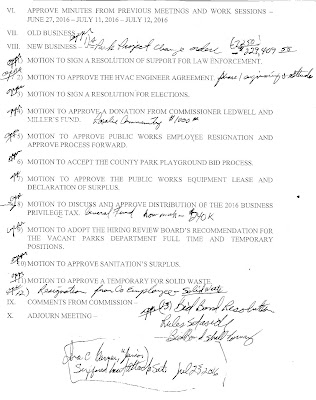 VI. APPROVE MINUTES FROM PREVIOUS MEETINGS AND WORK SESSIONS –
JUNE 27, 2016 – JULY 11, 2016 – JULY 12, 2016
VII. OLD BUSINESS
VIII. NEW BUSINESS – Park Project change orders
1) MOTION TO SIGN A RESOLUTION OF SUPPORT FOR LAW ENFORCEMENT.
2) MOTION TO APPROVE THE HVAC ENGINEER AGREEMENT.
3) MOTION TO SIGN A RESOLUTION FOR ELECTIONS.
4) MOTION TO APPROVE A DONATION FROM COMMISSIONER LEDWELL AND
MILLER'S FUND. Community $1000
5) MOTION TO APPROVE PUBLIC WORKS EMPLOYEE RESIGNATION AND
APPROVE PROCESS FORWARD.
6) MOTION TO ACCEPT THE COUNTY PARK PLAYGROUND BID PROCESS.
7) MOTION TO APPROVE THE PUBLIC WORKS EQUIPMENT LEASE AND
DECLARATION OF SURPLUS.
8) MOTION TO DISCUSS AND APPROVE DISTRIBUTION OF THE 2016 BUSINESS
PRIVILEGE TAX. General Fund how much $240K
9) MOTION TO ADOPT THE HIRING REVIEW BOARD'S RECOMMENDATION FOR
THE VACANT PARKS DEPARTMENT FULL TIME AND TEMPORARY
POSITIONS.
10) MOTION TO APPROVE SANITATION'S SURPLUS.
11) MOTION TO APPROVE A TEMPORARY FOR SOLID WASTE.
12) Resignation from Co Employee - Solid Waste
IX. COMMENTS FROM COMMISSION – (13) Bid Bond Resolution
X. ADJOURN MEETING – Rules
July 23 2016